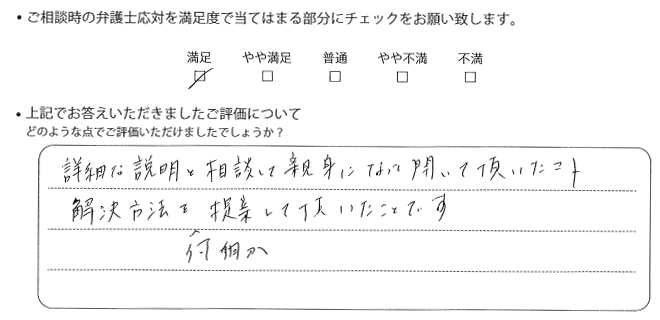 ・ご相談時の弁護士応対を満足度で当てはまる部分にチェックをお願い致します。
満足 やや満足 普通 やや不満 不満
・上記でお答えいただきましたご評価について
どのような点でご評価いただけましたでしょうか？
詳細な説明と相談して親身になって聞いて頂いたコト
解決方法を提案して頂いたことです
何個か